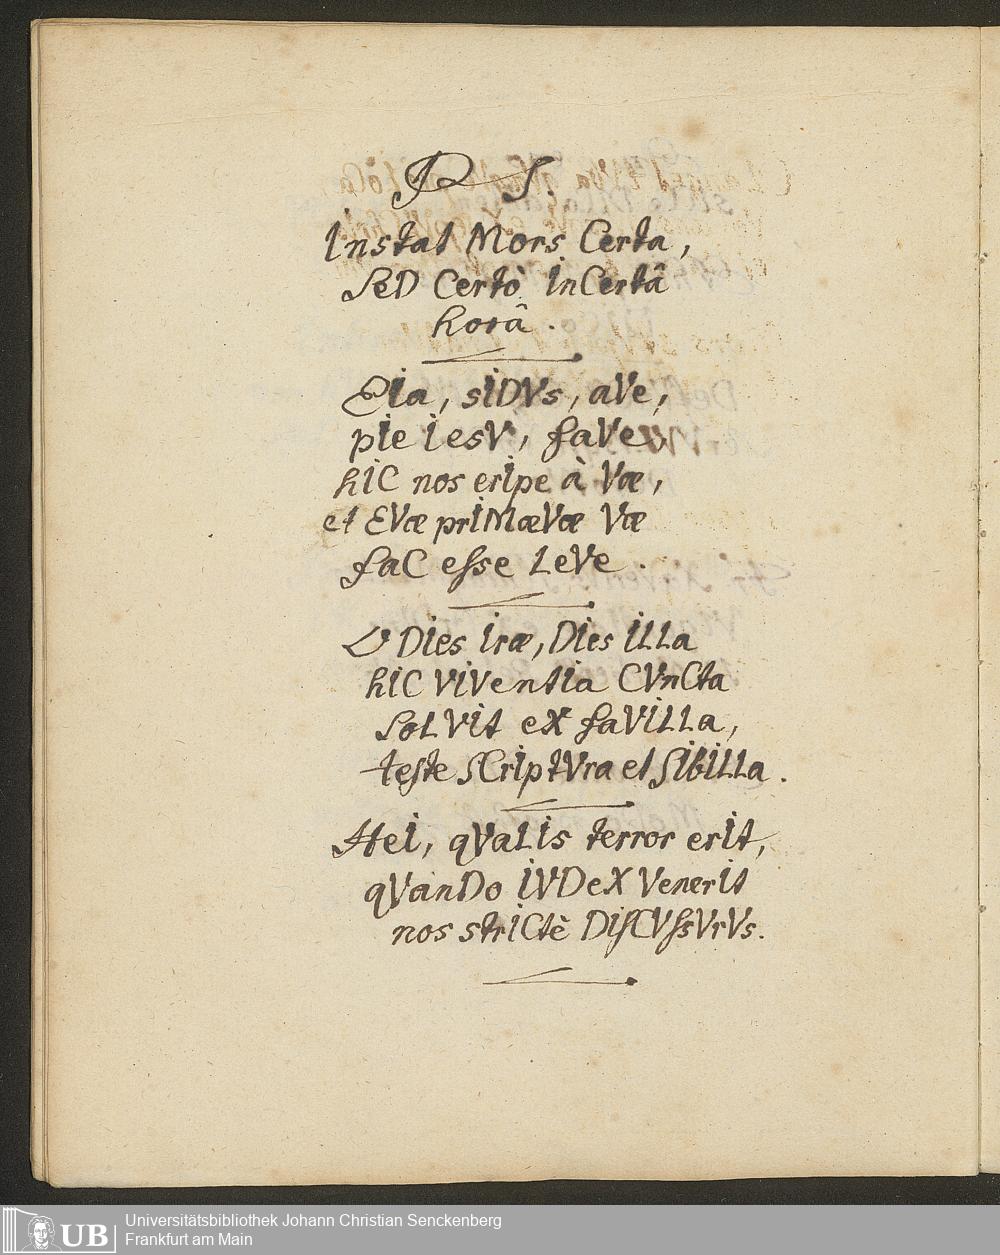 P S.
Instat Mors Certa,
SeD Certò InCertâ
horâ.
Eia, siDVs, aVe,
pIe IesV, faVe
hIC nos erIpe à Væ,
et EVæ priMæVæ Væ
faC esse LeVe.
O Dies Iræ, Dies iLLa
hIC ViVentia CVnCta
soLVit eX faViLLa,
teste sCriptVra et SibiLLa.
Hei, qVaLis terror erit,
qVanDo IVDeX Venerit
nos striCtè DisCVssVrVs.
UB
Universitätsbibliothek Johann Christian Senckenberg
Frankfurt am Main